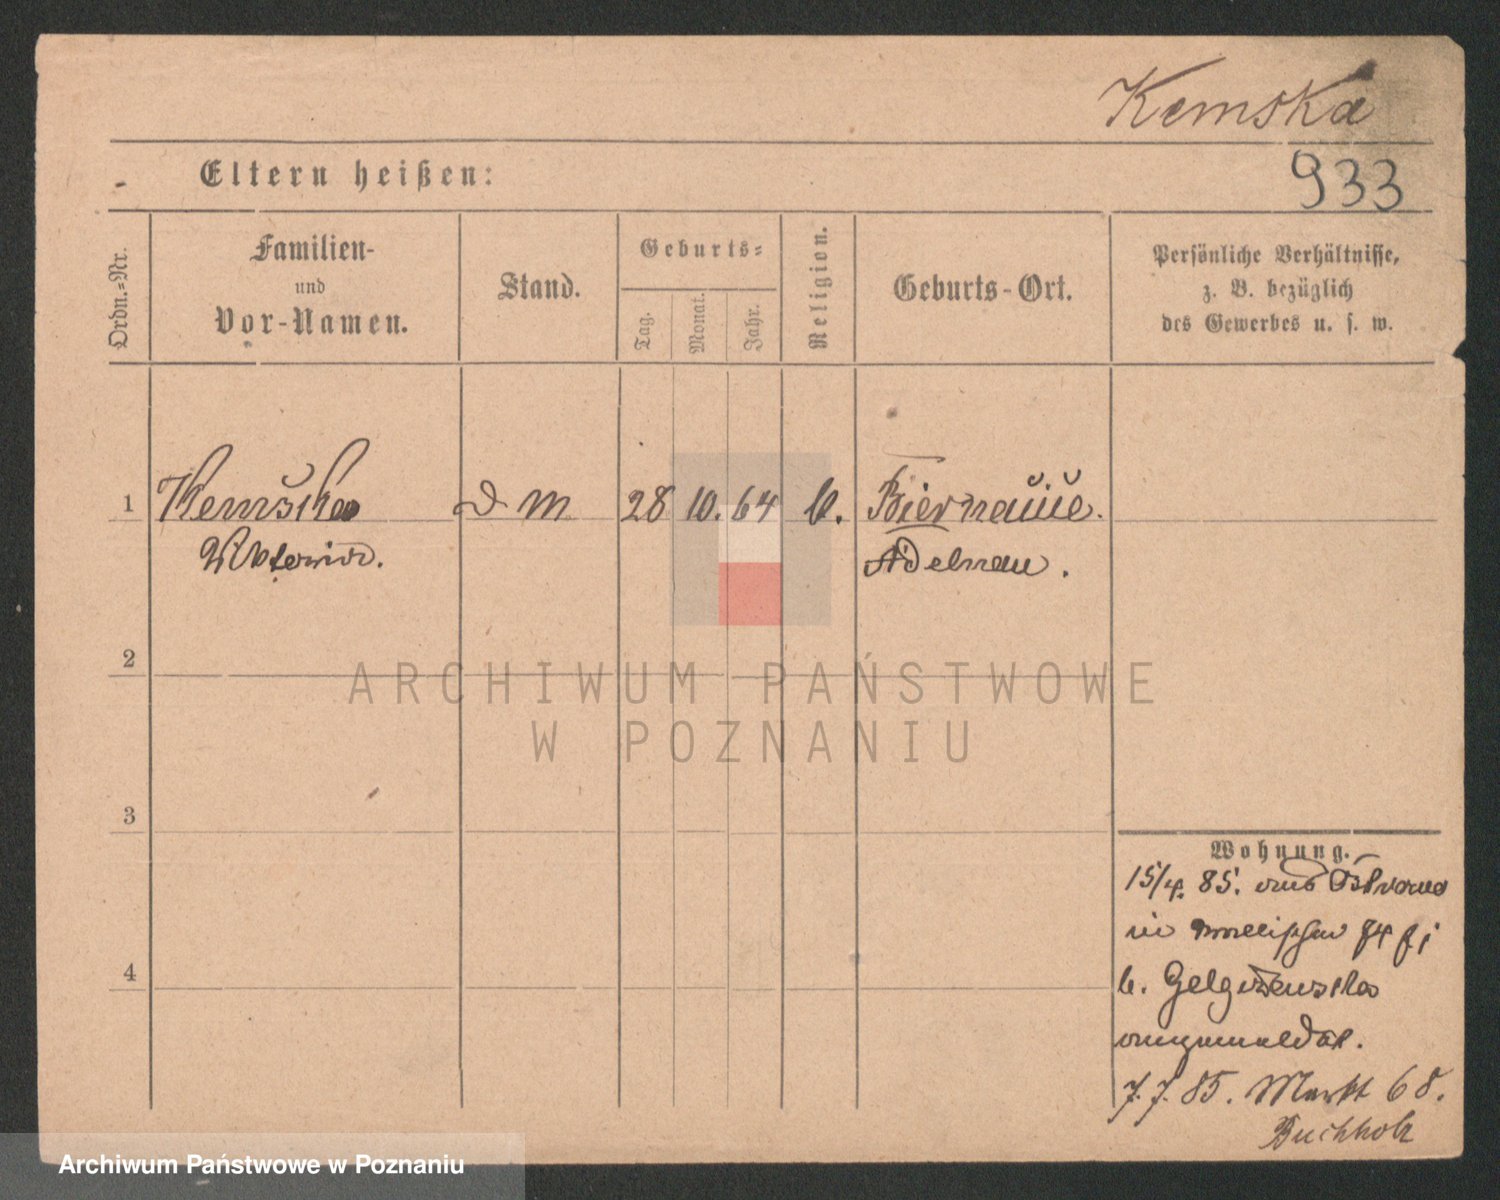 Kemska
933
Eltern heißen:
Ordn.-Nr.
Familien-
und
Vor-Namen.
Stand.
Geburts-
Tag.
Monat.
Jahr.
Religion.
Geburts-Ort.
Persönliche Verhältnisse,
z. B. bezüglich
des Gewerbes u. s. w.
1
Kemska
Viktoria.
D M
28
10.
64
k.
Biernacice.
Adelnau.
2
3
4
Wohnung.
15/4. 85. aus Ostrowo
in 74
b. Gelgozewska
angemeldet.
7.7.85. Markt 68.
Buchholz
ARCHIWUM PAŃSTWOWE
W POZNANIU
Archiwum Państwowe w Poznaniu